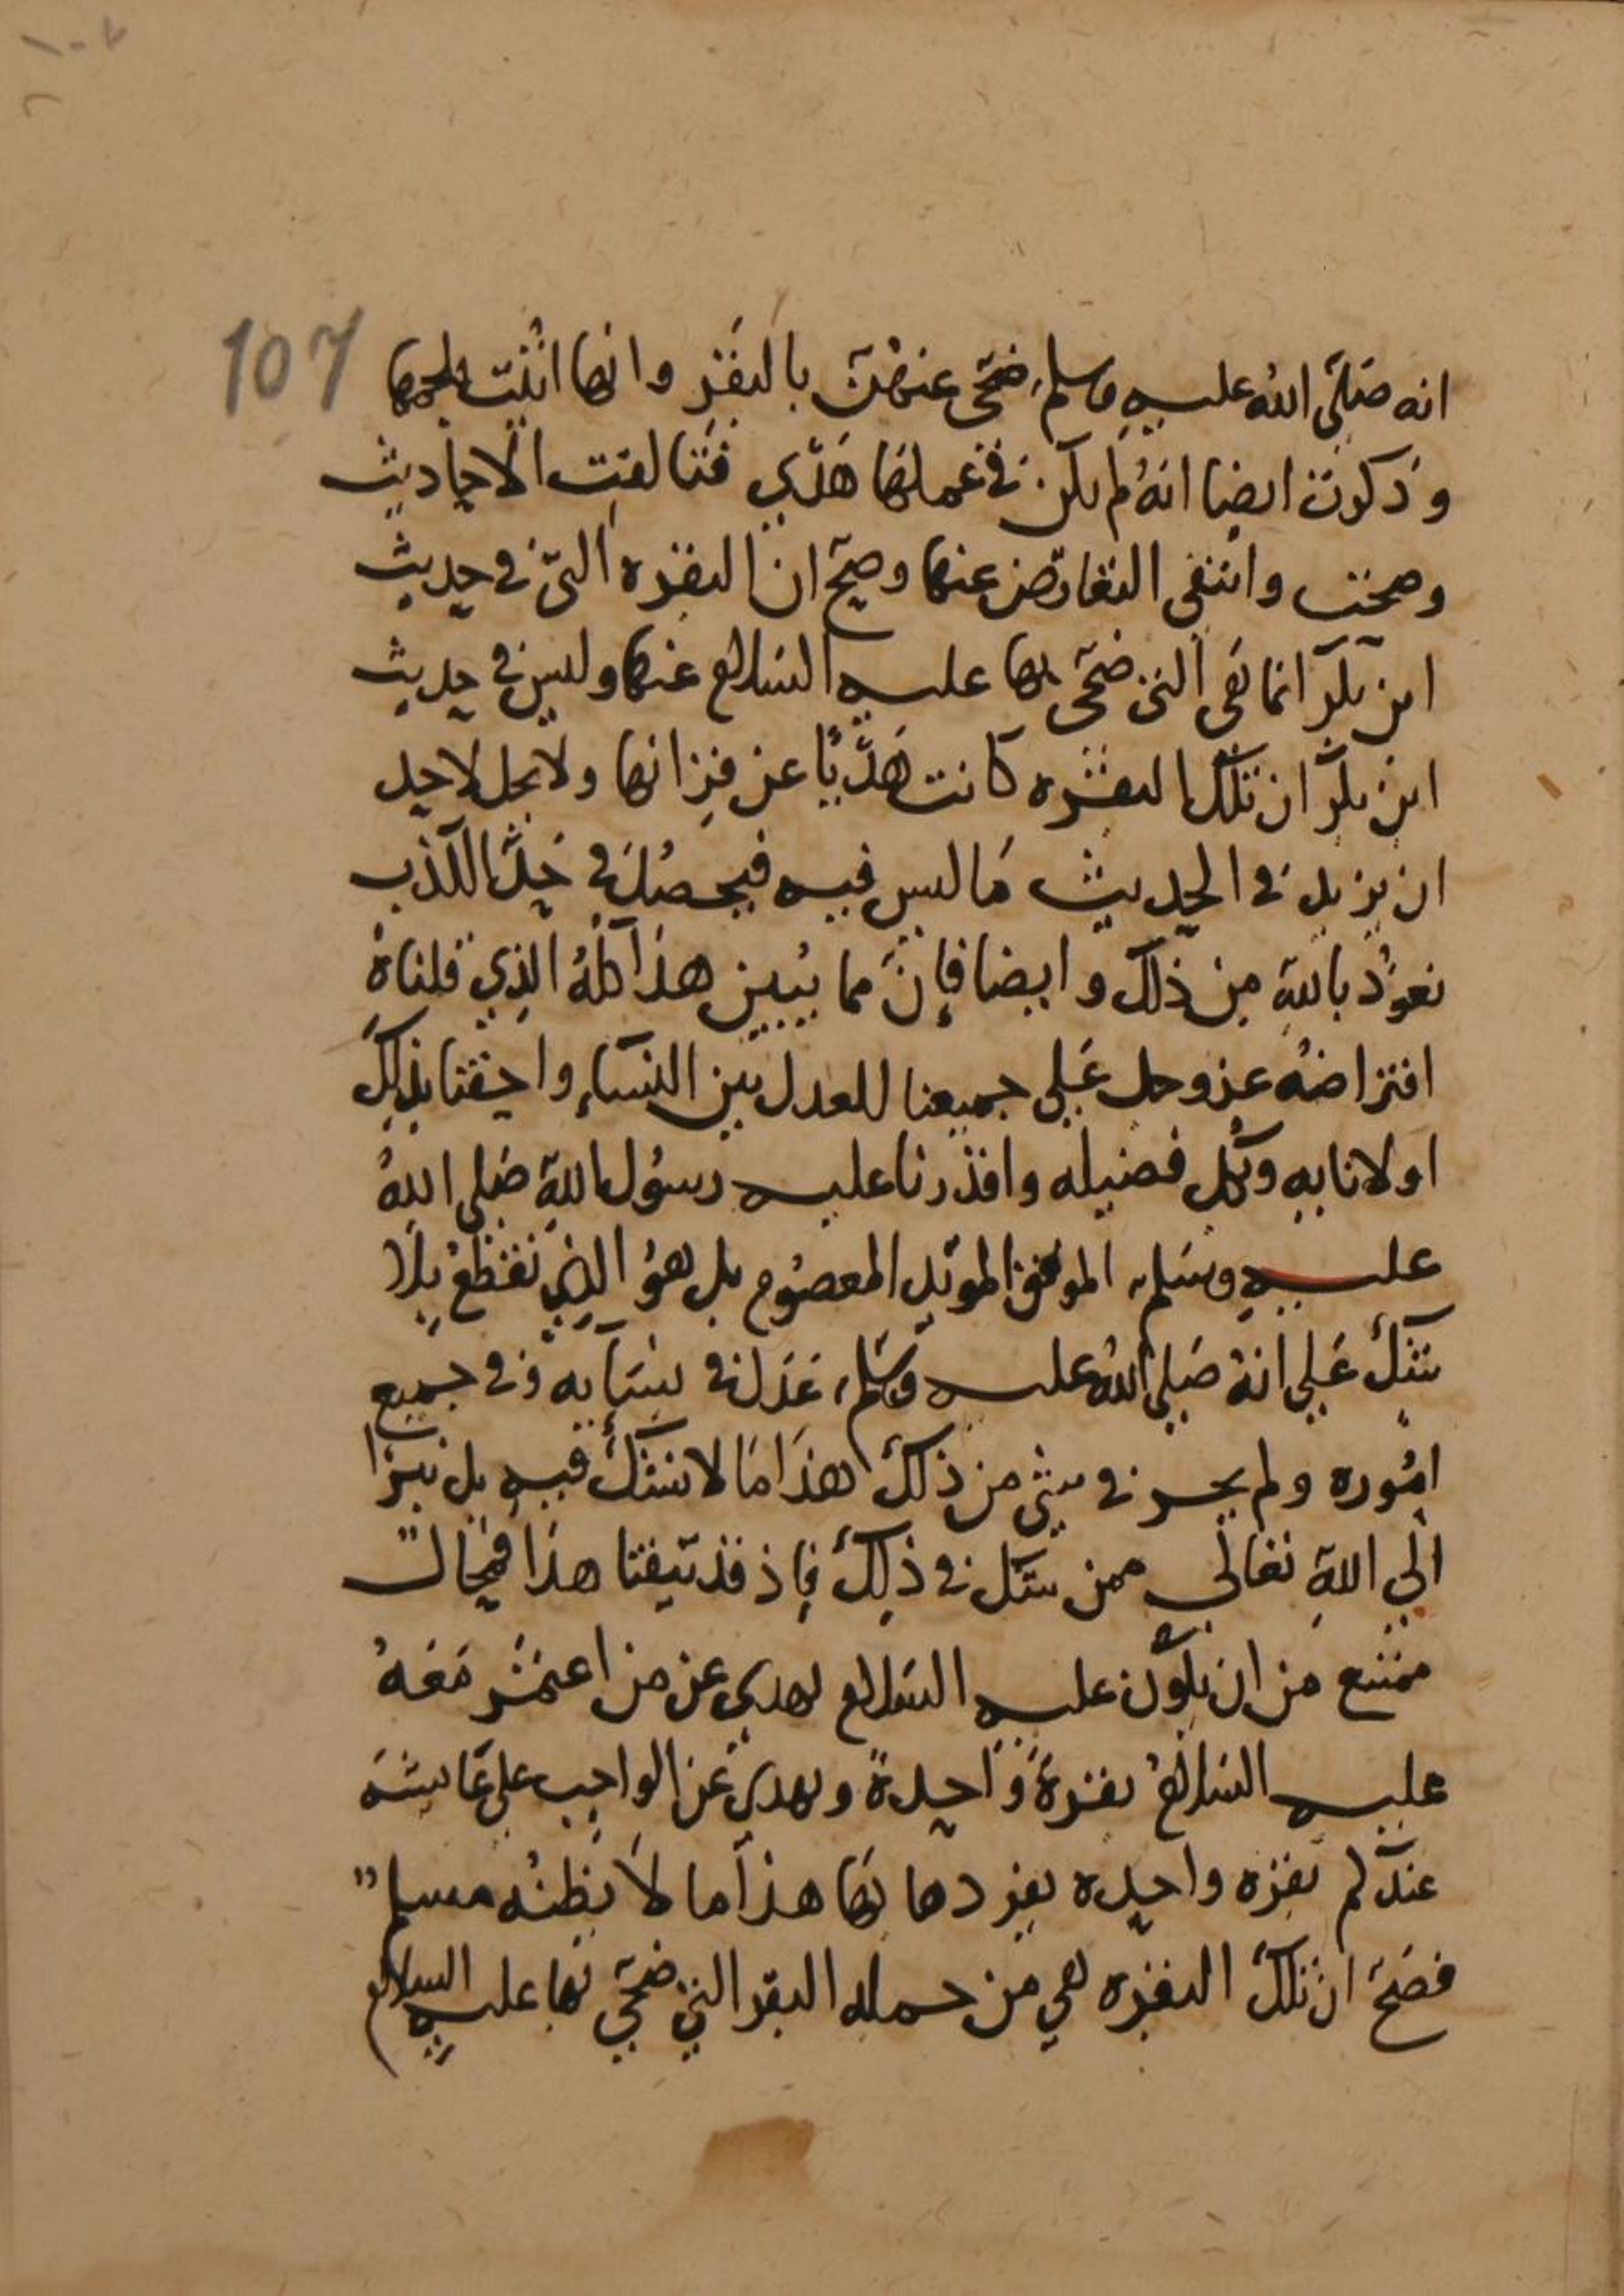 107
انه صَلَّى اللهُ عليهِ وسلم ضحَّى عنهُنَّ بالبقَر وانها اُتيَت بلحمها
وذكرت ايضا انهُ لم يكن في عملها هَدْي فتالفت الاحاديث
وصحت وانتفى التعارض عنها وصحّ ان البقره التي في حديث
ابن بكر انما هي التي ضحَّى بها عليه السلام عنها وليس في حديث
ابن بكر ان تلك البقره كانت هَدْيًا عن قرانها ولا يحل لاحد
ان يزيد في الحديث مَا ليس فيه فيحصُل في حَدّ الكذب
نعوُذ باللهِ من ذلك وايضا فإنّ مما يُبين هذا كلهُ الذِي قلناهُ
افتراضهُ عز وجل عَلى جميعنا للعدل بين النسَاءِ واحقنا بذلِكَ
اولانا بهِ وبكل فضيله واقدرنا عليه رسُول اللهِ صَلى اللهُ
عليهِ وسَلم الموفق المويد المعصُوم بل هوُ الذِي نقطعُ بِلَا
شَك عَلى انهُ صَلى اللهُ عليه وسَلم عَدَل في نسَايه وَفي جميع
امُوره ولم يجر في شي من ذلك هذَا مَا لا نشك فيهِ بل نبرَا
الَي اللهِ تعَالَي ممن شك في ذلِكَ فاِذ قد تيقنا هذَا فمحال
ممتنع من ان يكون عليهِ السَلام يهدِي عن من اعتمَر مَعَهُ
عليه السَلامُ بقرةً وَاحدةً ويهدِي عَن الواجب على عَايشَه
عندكم بقره واحده يفردها بهَا هذا ما لا يظنُه مسلم
فصَحّ ان تلكَ البقره هي من جمله البقر التي ضحَّى بها عليهِ السلام